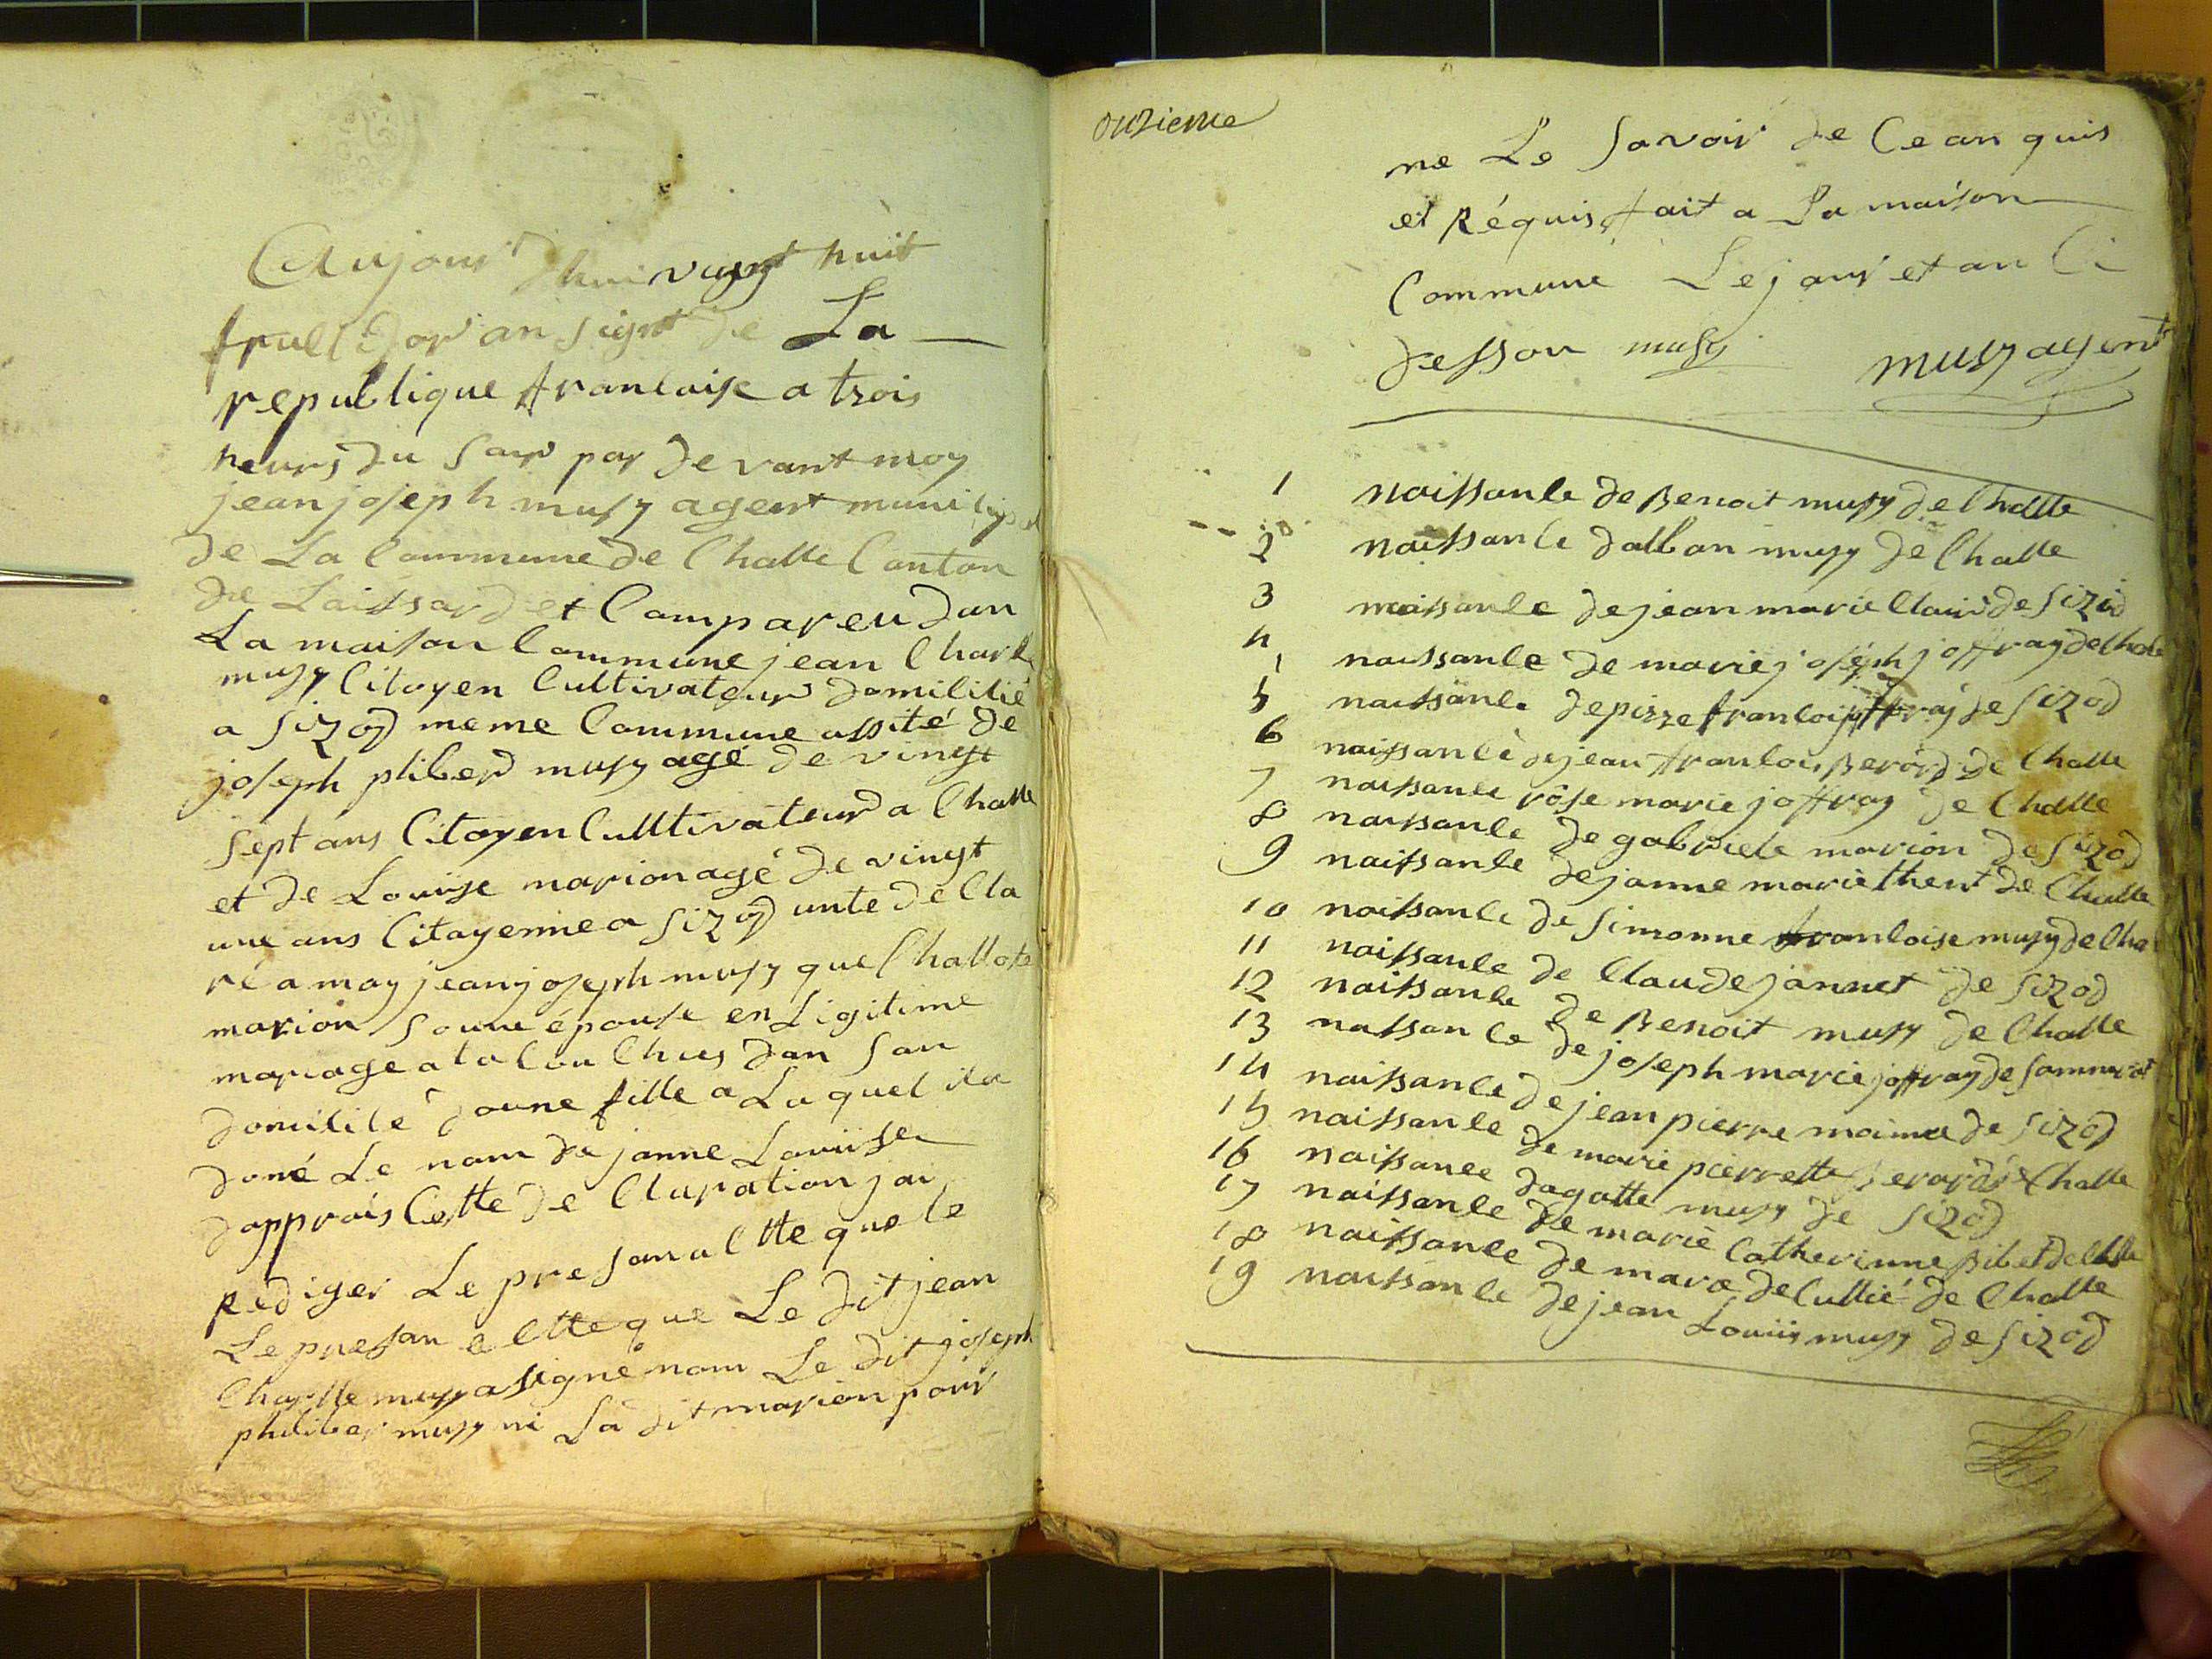 Aujour dhui vingt huit
fructidor an sigt de La
republique francaise a trois
heurs du soir par devant moy
jean joseph musy agent municipal
de La Commune de Challe Canton
de Laissard et Compareu dan
La maison Commune jean Charle
musy Citoyen Cultivateur domicilié
a sizod meme Commune assité de
joseph pliberd musy agé de vingt
sept ans Citoyen Cultivateur a Challe
et de Louise marion agé de vingt
une ans Citayenne a sizod unte de Cla
ré a moy jean joseph musy que Challote
marion son épouse en Ligitime
mariage a Couchies dan san
domicile doune fille a Laquel ila
doné Le nom de janne Louiise
dapprais Cette de Claration jai
rediger Le presan actte que le
Le presan actte que Le dit jean
Charlle musy a signé nom Le dit joseph
philiber musy ni La dit marion pour
onzieme
ne Le savoir de Ce an quis
et Réquis fait a La maison
Commune Le jour et an Ci
desson musy musy agent
1 naissance de Benoit musy de Challe
2 naissance dalban musy de Challe
3 naissance de jean marie Clair de sizod
4 naissance de marie joséph joffray de Chale
5 naissance de pierre francois joffray de sizod
6 naissance de jean francois Berord de Challe
7 naissance rôse marie joffray de Challe
8 naissance de gabriele marion de sizod
9 naissance de janne marie thent de Challe
10 naissance de simonne francoise musy de Cha
11 naissance de Claude jannet de sizod
12 naissance de Benoit musy de Challe
13 naissance de joseph marie joffray de
14 naissance de jean pierre de sizod
15 naissance de marie pierrette Berard de Challe
16 naissance dagatte musy de sizod
17 naissance de marie Catherinne
18 naissance de marie de Cullié de Challe
19 naissance de jean Louiis musy de sizod